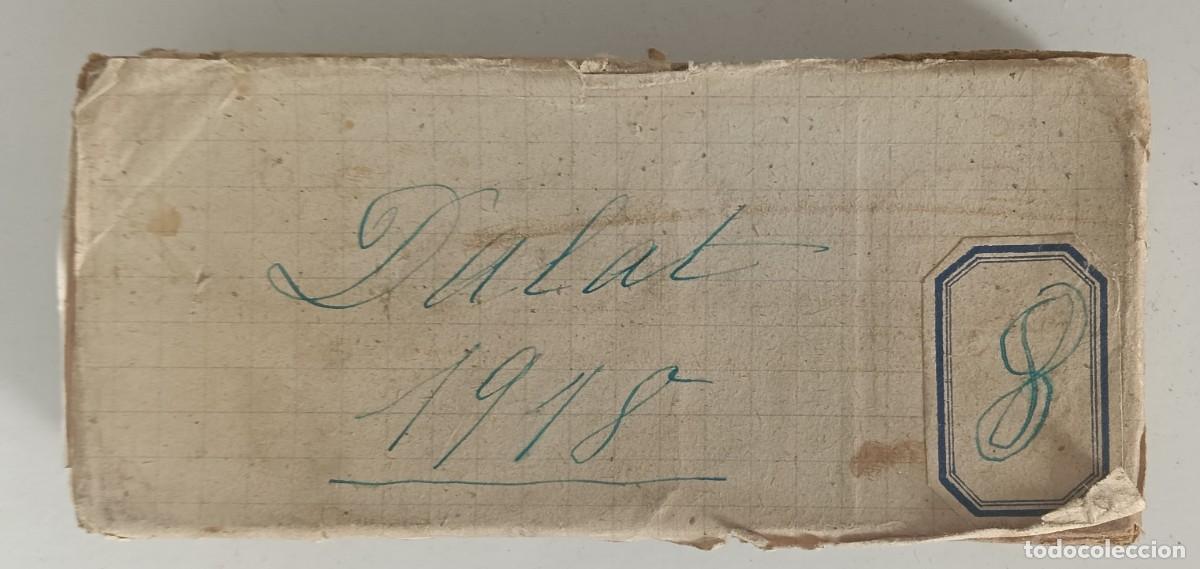 Dalat
1918
8
todocoleccion